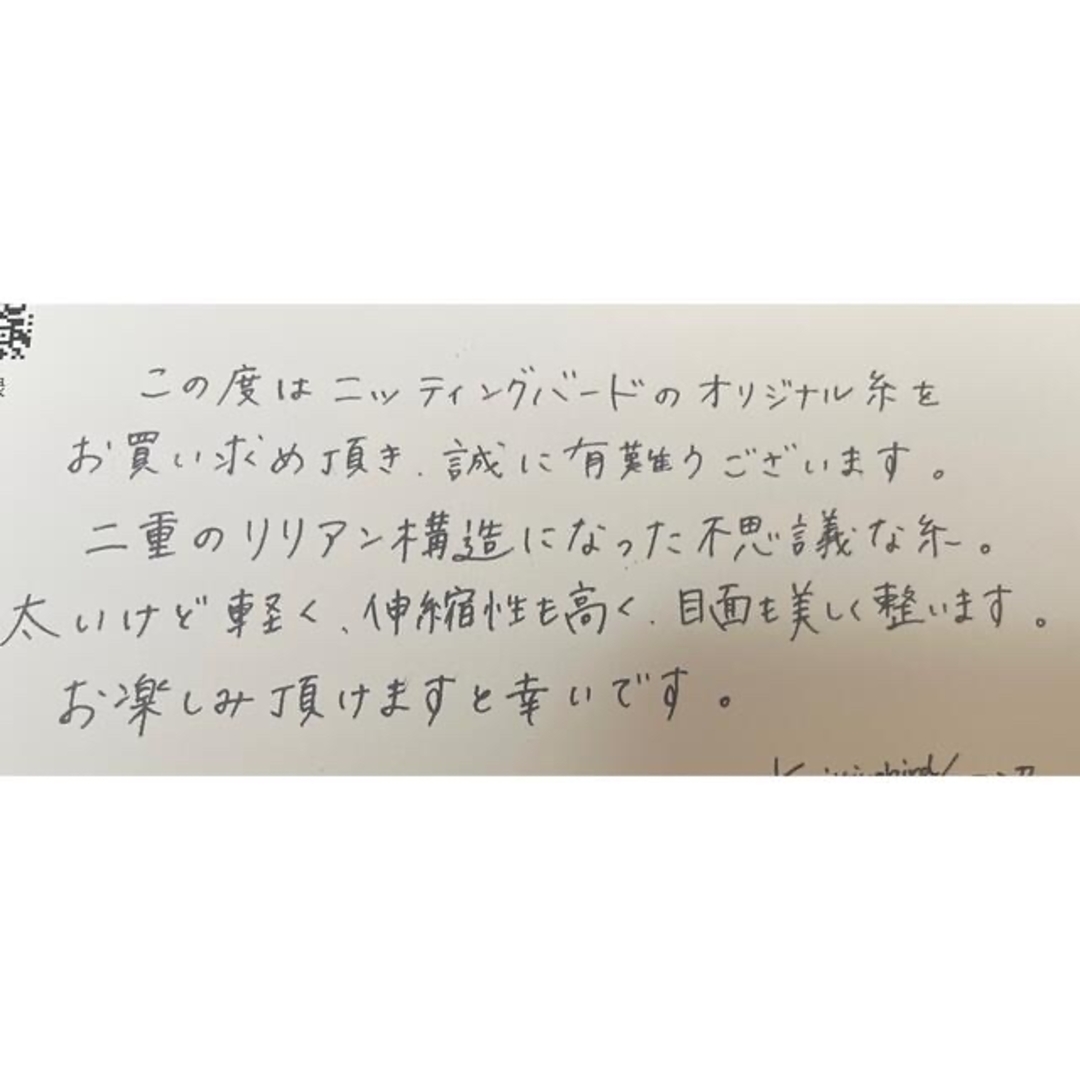 この度はニッティングバードのオリジナル糸を
お買い求め頂き、誠に有難うございます。
二重のリリアン構造になった不思議な糸。
太いけど軽く、伸縮性も高く、目面も美しく整います。
お楽しみ頂けますと幸いです。